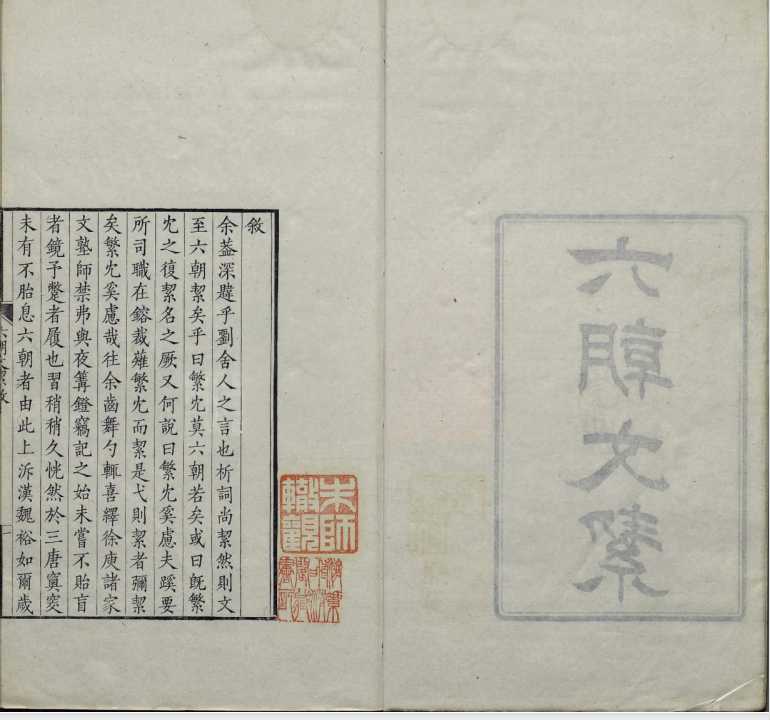 六朝文絜
敘
余葢深韙乎劉舍人之言也析詞尚絜然則文
至六朝絜矣乎曰繁冘莫六朝若矣或曰旣繁
冘之復絜名之厥又何說曰繁冘奚慮夫蹊要
所司職在鎔裁薙繁冘而絜是弋則絜者彌絜
矣繁冘奚慮哉往余齒舞勺輒喜繹徐庾諸家
文塾師禁弗與夜篝鐙竊記之始未嘗不貽盲
者鏡予躄者履也習稍稍久恍然於三唐奧窔
未有不胎息六朝者由此上泝漢魏裕如爾歲
六朝文絜敘
一